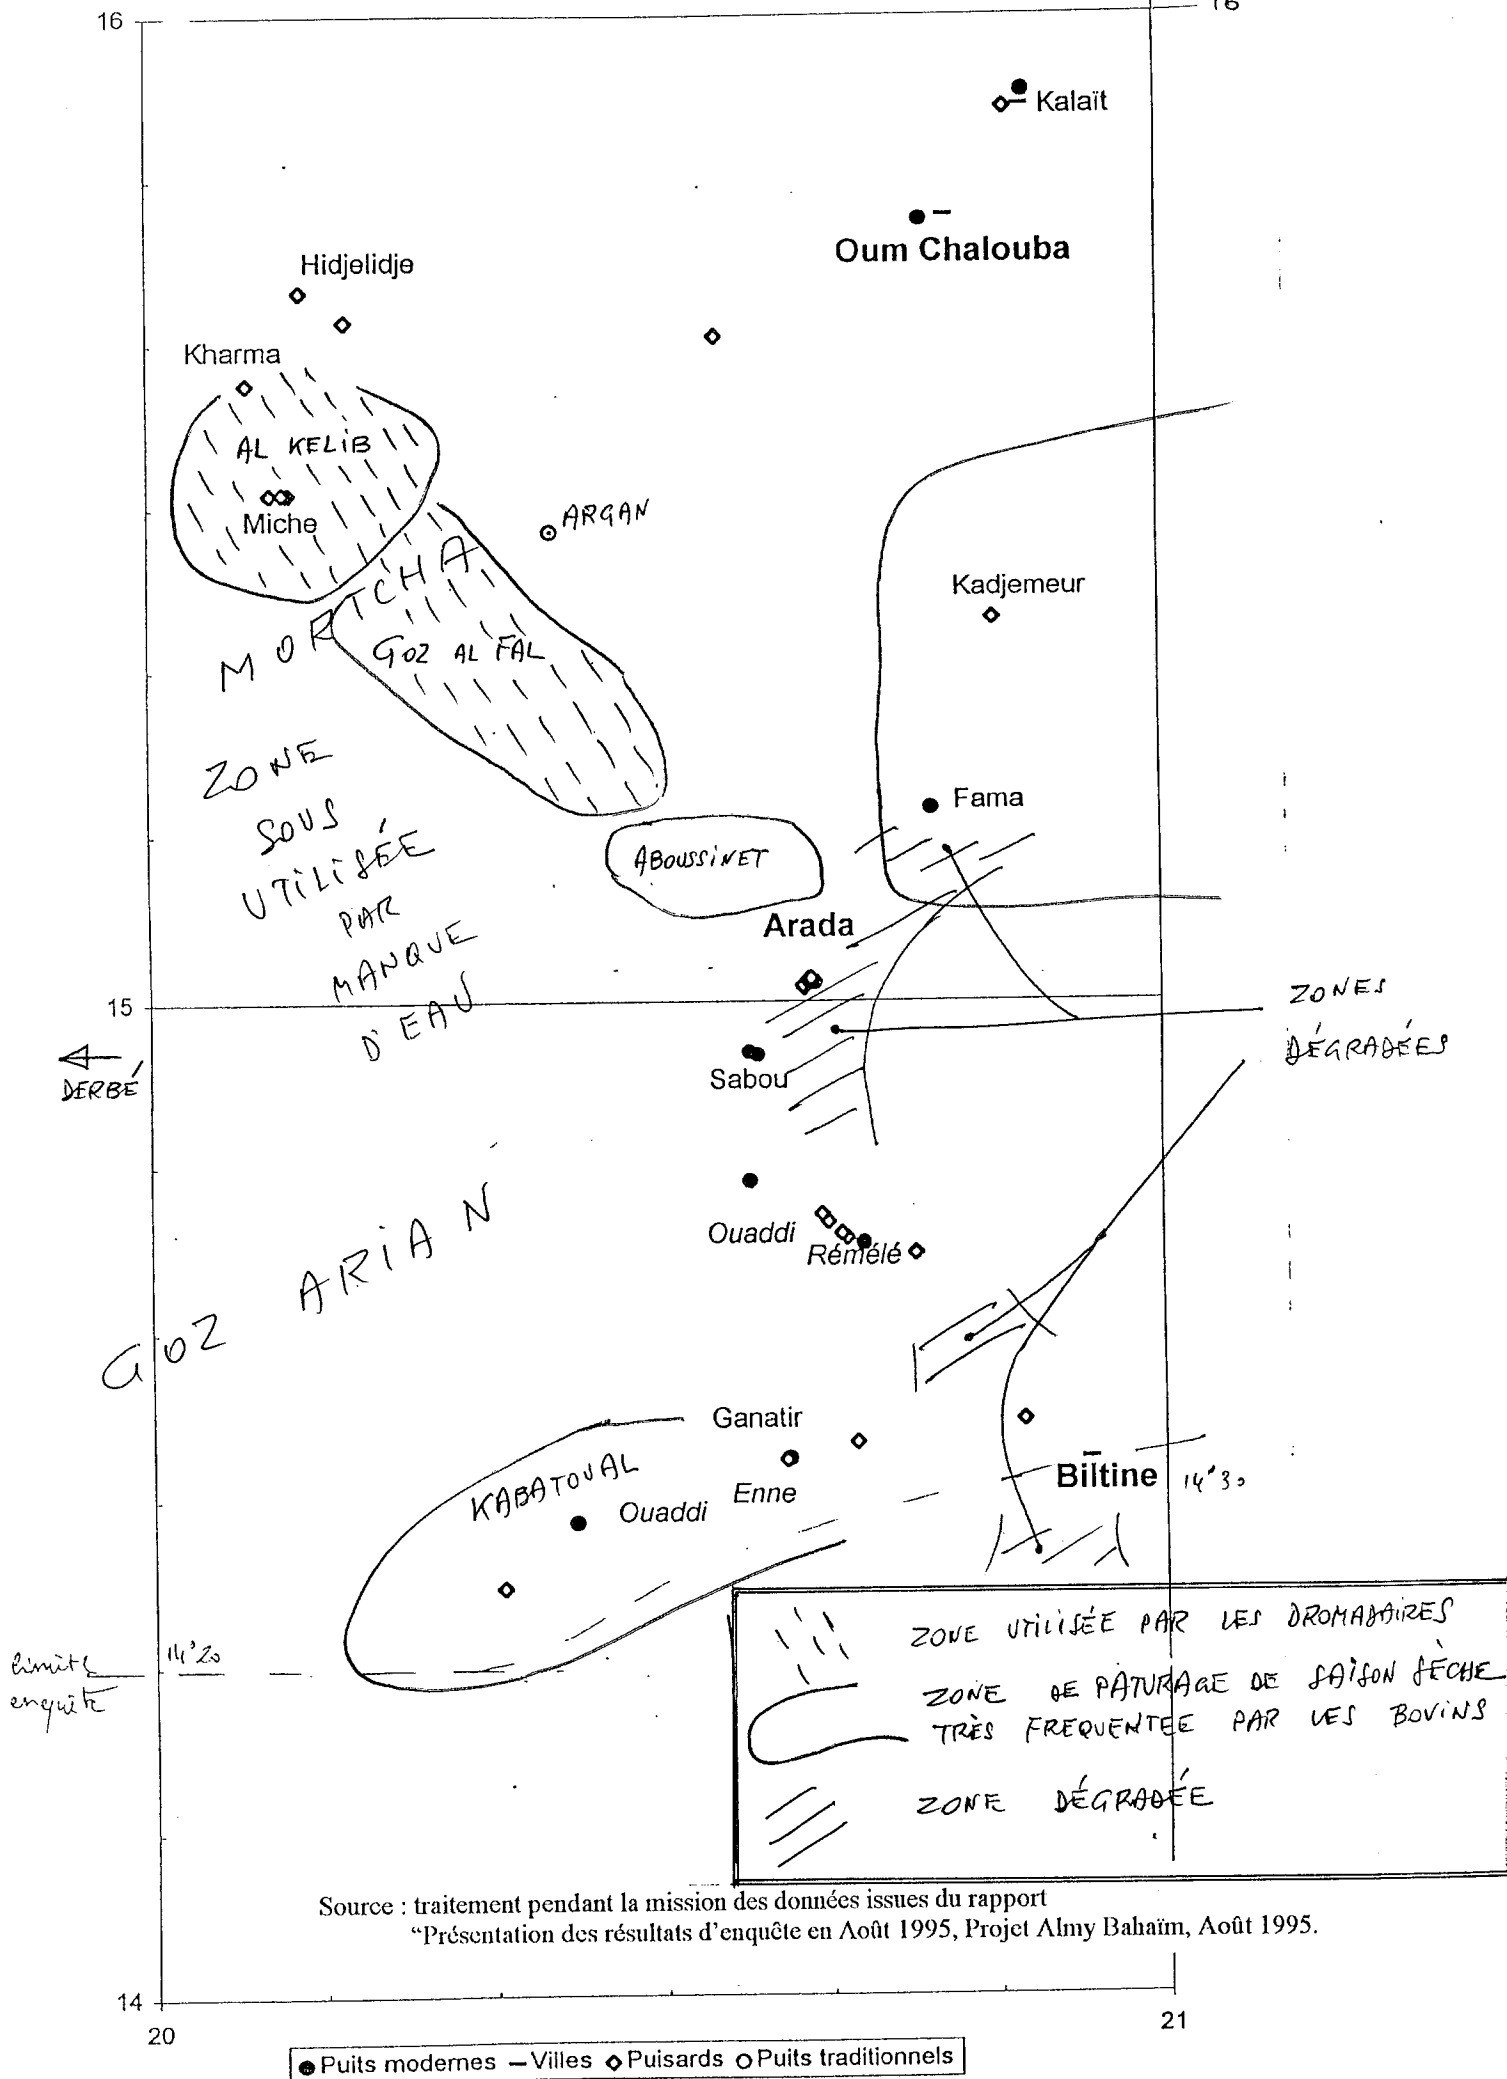 16
16
Kalaït
Oum Chalouba
Hidjelidje
Kharma
AL KELIB
Miche
ARGAN
MORTCHA
Kadjemeur
GOZ AL FAL
ZONE
SOUS
UTILISÉE
PAR
MANQUE
D'EAU
Fama
ABOUSSINET
Arada
15
ZONES
DÉGRADÉES
DERBÉ
Sabou
Ouaddi
Rémélé
GOZ ARIAN
Ganatir
KABATOUAL
Enne
Ouaddi
Biltine
14°30
limite
enquête
14°20
ZONE UTILISÉE PAR LES DROMADAIRES
ZONE DE PÂTURAGE DE SAISON SÈCHE
TRÈS FREQUENTEE PAR LES BOVINS
ZONE DÉGRADÉE
Source : traitement pendant la mission des données issues du rapport
“Présentation des résultats d’enquête en Août 1995, Projet Almy Bahaïm, Août 1995.
14
20
21
Puits modernes – Villes Puisards Puits traditionnels